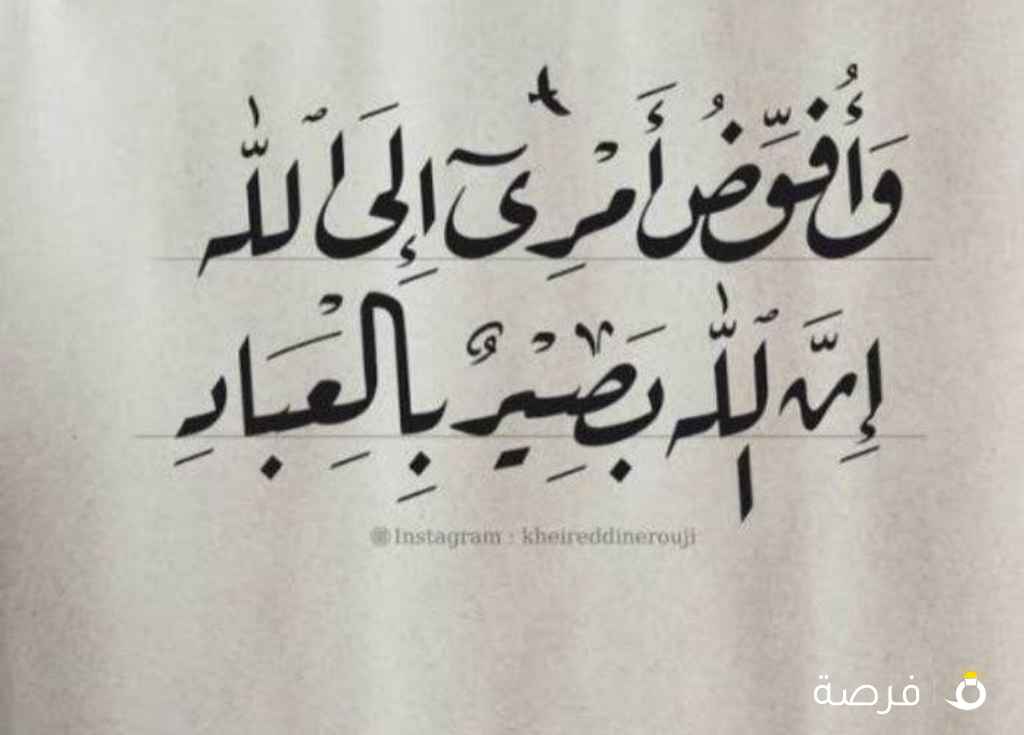 وَأُفَوِّضُ أَمْرِىٓ إِلَى ٱللَّهِ
إِنَّ ٱللَّهَ بَصِيْرٌ بِالْعِبَادِ
@Instagram : kheireddinerouji
فرصة